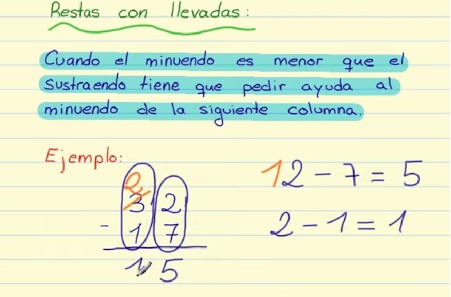 Restas con llevadas:
Cuando el minuendo es menor que el
sustraendo tiene que pedir ayuda al
minuendo de la siguiente columna.
Ejemplo:
2
3 2
- 1 7
1 5
12 - 7 = 5
2 - 1 = 1